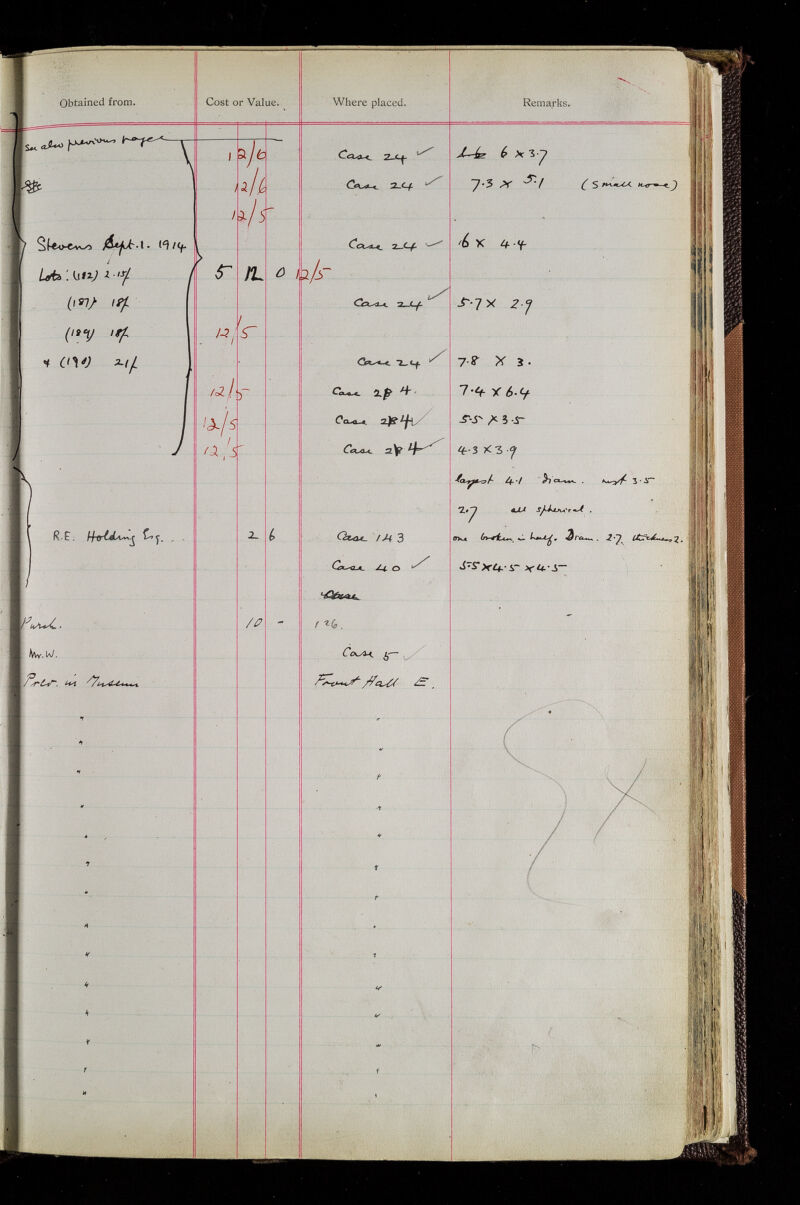 Obtained from. Cost or Value. Where placed. Remarks.
See also previous pages
12/6 Case 24 ✓ 6 × 3.7
12/6 Case 24 ✓ 7.3 × 5.1 (Small nose)
12/5
Stevens Sept. 1. 1914 Case 24 ✓ 6 × 4.4
Lots: (182) 2.15/ 5 12 0 12/5
(187) 18/. Case 24 ✓ 5.7 × 2.9
(189) 18/. 12/5
& (190) 21/. Case 24 ✓ 7.8 × 3.
12/5 Case 24. 7.4 × 6.4
12/5 Case 24 ✓ 5.5 × 3.5
12/5 Case 24 ✓ 4.3 × 3.9
largest 4.1 diam. next 3.5
2.7 all spherical.
R.E. Holding Esq. . . 2 6 Case 143 one broken in half. Diam. 2.7. thickness 2.
Case 40 ✓ 5.5 × 4.5 × 4.5
Case
Purch. 10 - 126.
Mr. W. Case 5 ✓
Prev. in Museum Front Hall E.
" "
" "
" "
" "
" "
" "
" "
" "
" "
" "
" "
" "
" "
" "